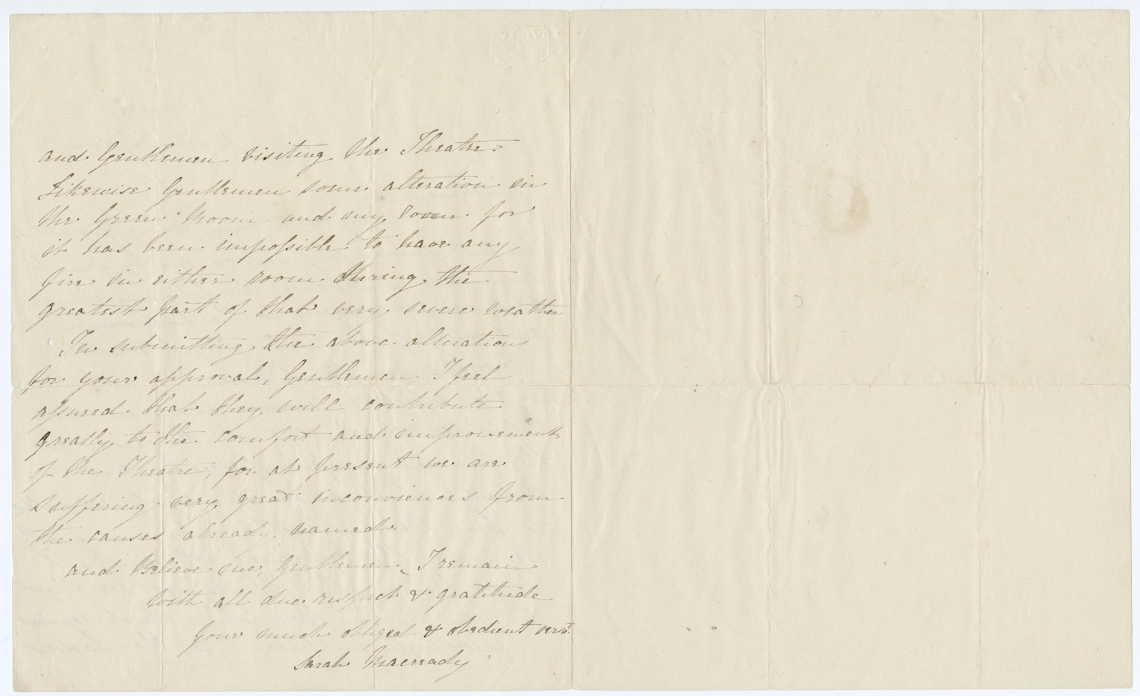 and Gentlemen visiting the Theatre.
Likewise Gentlemen some alteration in
the Green Room and my room for
it has been impossible to have any
fire in either room during the
greatest part of that very severe weather
In submitting the above alterations
for your approval, Gentlemen I feel
assured that they will contribute
greatly to the comfort and improvement
of the Theatre, for at present we are
suffering very great inconviences from
the causes already named
and Believe me, Gentlemen, I remain
with all due respect & gratitude
Your much obliged & obedient servt.
Sarah Macready